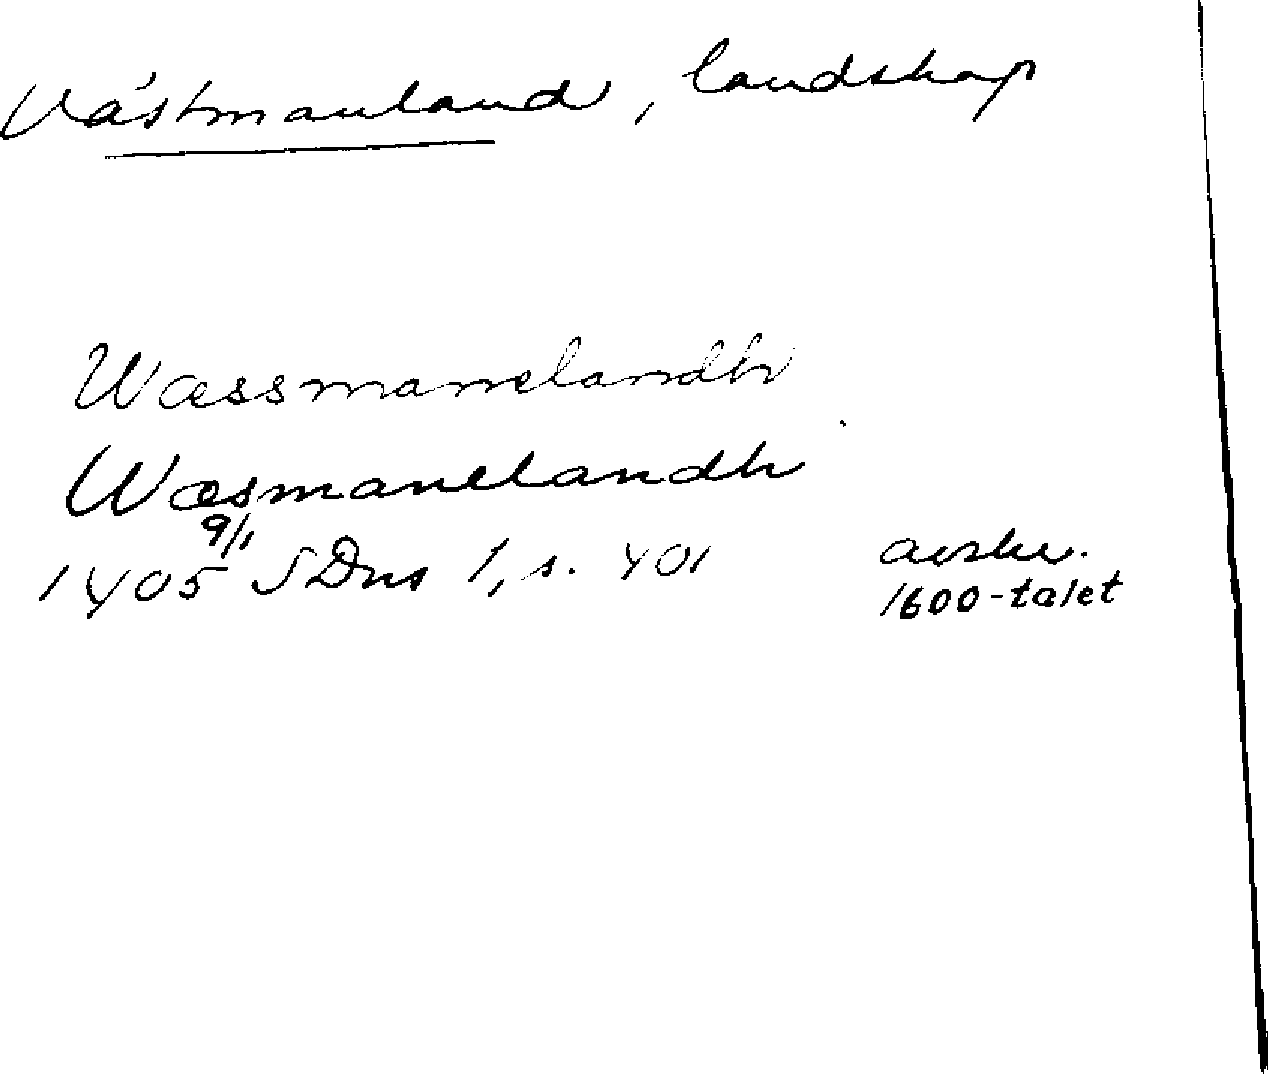 Västmanland, landskap
Wæssmannelandh
Wæsmanelandh
1405 9/1 SDns 1, s. 401 avskr.
1600-talet